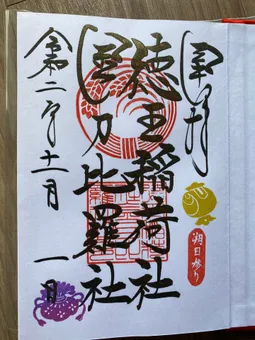 奉拝
徳王稲荷社
金刀比羅社
令和二年十一月
一日
朔日参り